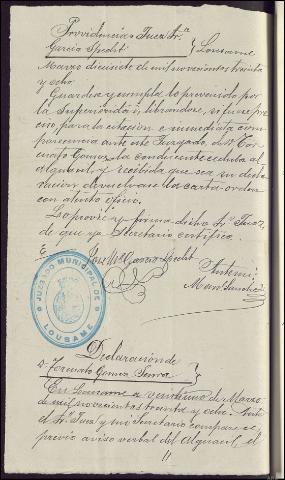 Providencia = Juez Sr.
García Spelet. } Lousame
Marzo diecisiete de mil novecientos treinta
y ocho.
Guardese y cumpla lo prevenido por
la Superioridad, librandose, si fuere pre-
ciso, para la citación e inmediata com-
parecencia ante este Juzgado, de
Gomez, la conducente cedula al
Alguacil, y recibida que sea su decla-
ración devuelvase la carta-orden
con atento oficio.
Lo proveé y firma dicho Sr. Juez,
de que yo Secretario certifico.
José Mª García Spelet
Antemi
Manl. Sanchez
JUZGADO MUNICIPAL DE
LOUSAME
Declaración de
D. Gomez }
En Lousame a veintiuno de Marzo
de mil novecientos treinta y ocho. Ante
el Sr. Juez y mi Secretario comparece,
previo aviso verbal del Alguacil, el